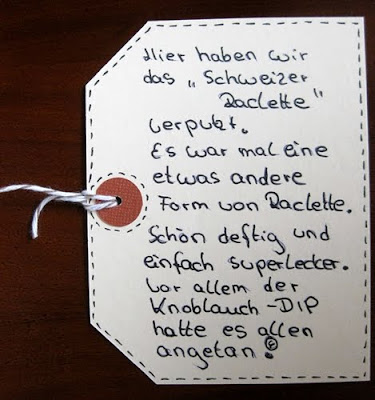 Hier haben wir
das „Schweizer
Raclette"
verputzt.
Es war mal eine
etwas andere
Form von Raclette.
Schön deftig und
einfach superlecker.
Vor allem der
Knoblauch-DIP
hatte es allen
angetan!